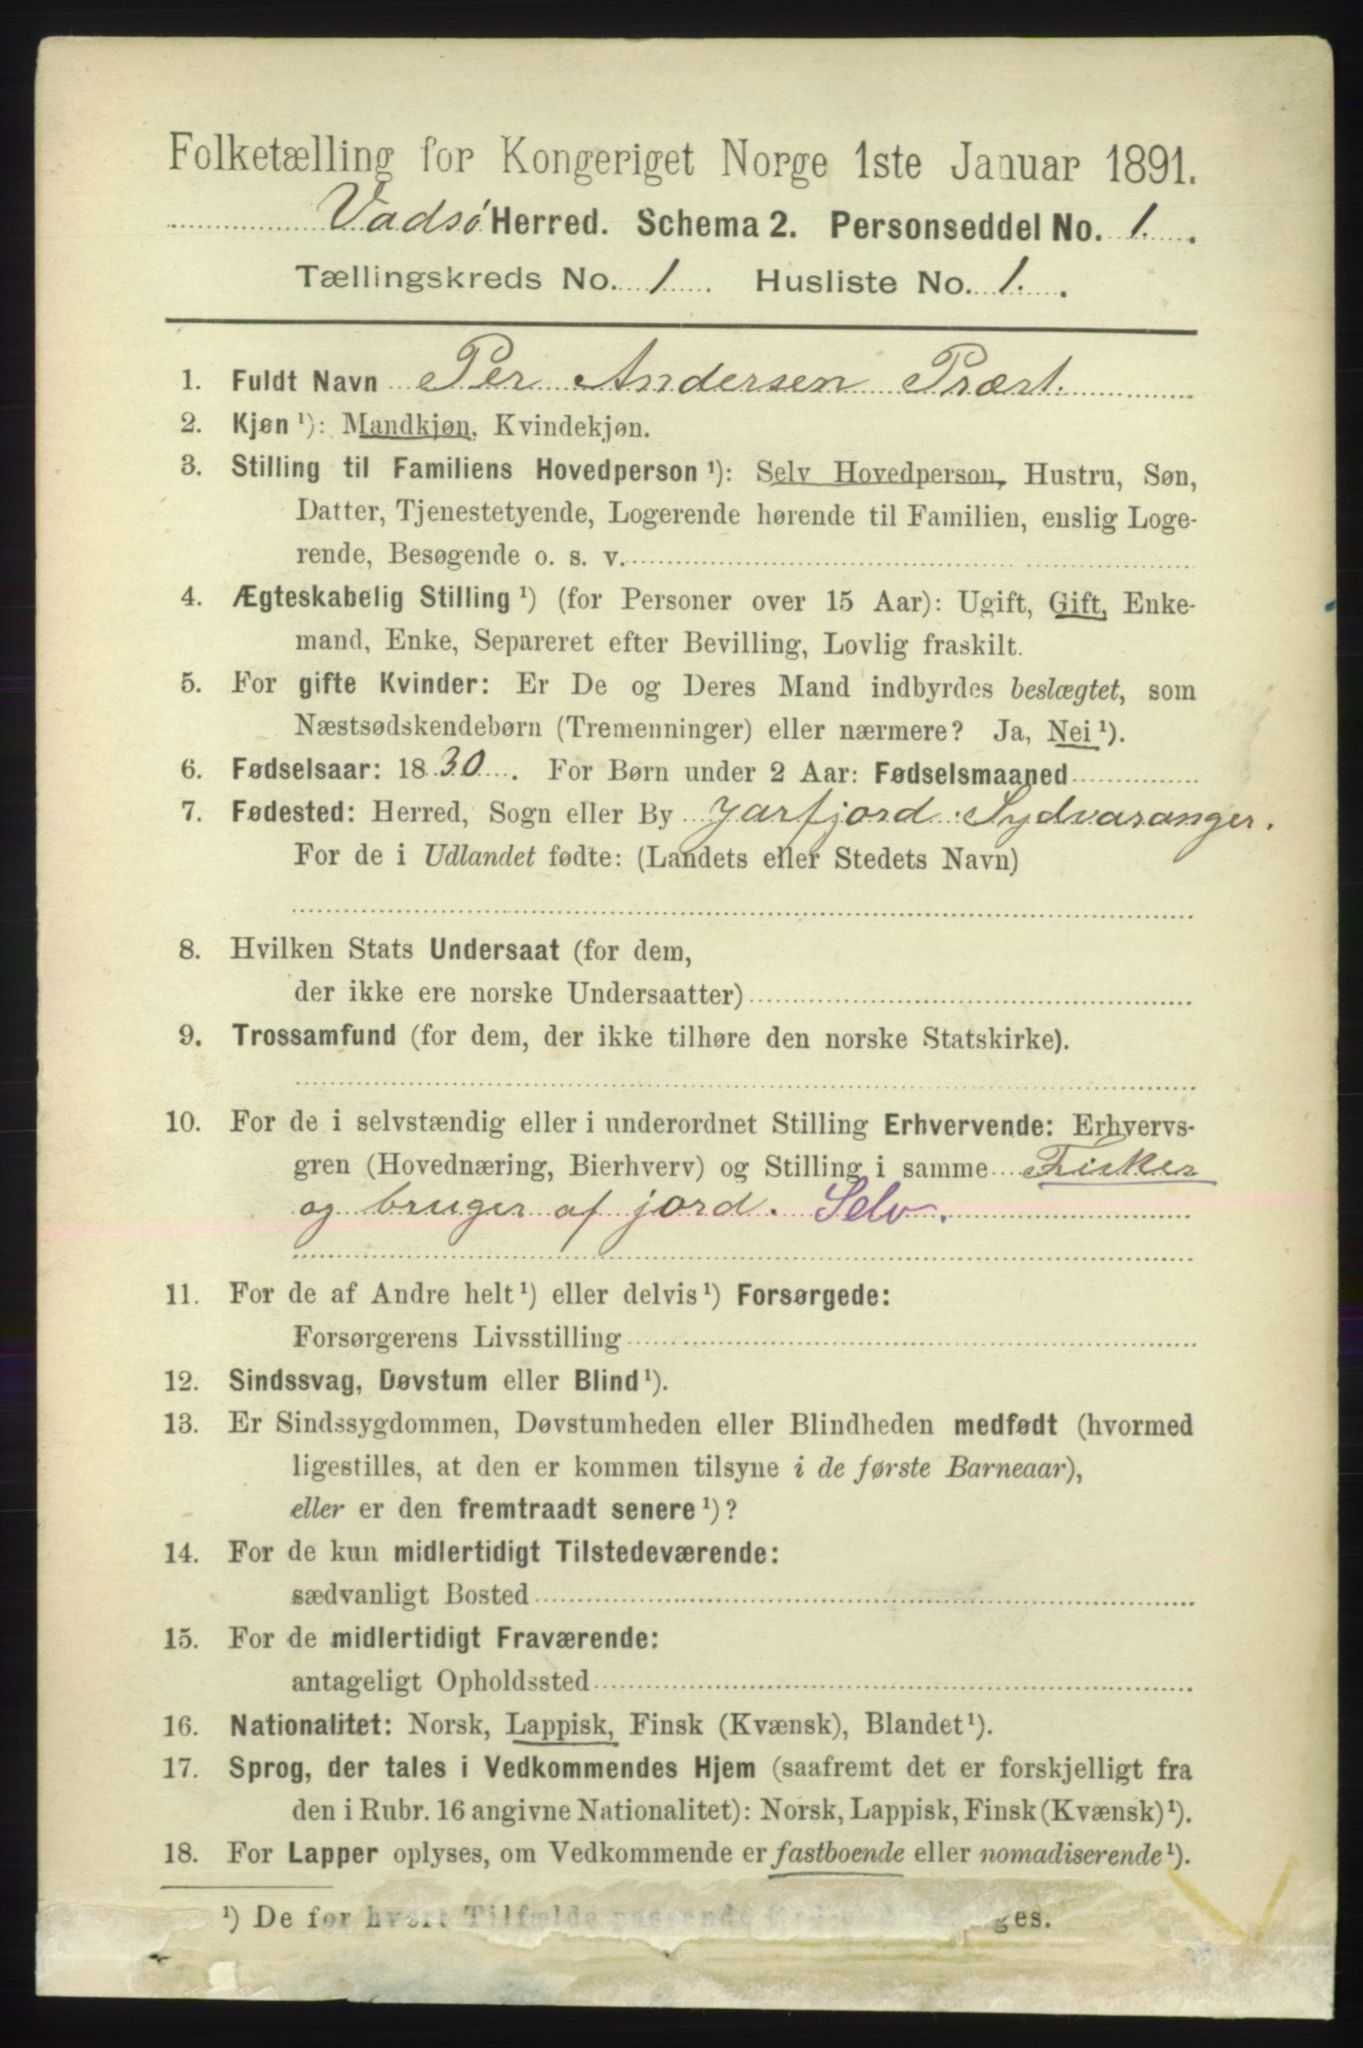 Folketælling for Kongeriget Norge 1ste Januar 1891.
Vadsø Herred. Schema 2. Personseddel No. 1.
Tællingskreds No. 1 Husliste No. 1.
1. Fuldt Navn Per Andersen Præst.
2. Kjøn ¹): Mandkjøn, Kvindekjøn.
3. Stilling til Familiens Hovedperson ¹): Selv Hovedperson, Hustru, Søn,
Datter, Tjenestetyende, Logerende hørende til Familien, enslig Loge-
rende, Besøgende o. s. v.
4. Ægteskabelig Stilling ¹) (for Personer over 15 Aar): Ugift, Gift, Enke-
mand, Enke, Separeret efter Bevilling, Lovlig fraskilt.
5. For gifte Kvinder: Er De og Deres Mand indbyrdes beslægtet, som
Næstsødskendebørn (Tremenninger) eller nærmere? Ja, Nei ¹).
6. Fødselsaar: 1830. For Børn under 2 Aar: Fødselsmaaned
7. Fødested: Herred, Sogn eller By Jarfjord Sydvaranger.
For de i Udlandet fødte: (Landets eller Stedets Navn)
8. Hvilken Stats Undersaat (for dem,
der ikke ere norske Undersaatter)
9. Trossamfund (for dem, der ikke tilhøre den norske Statskirke).
10. For de i selvstændig eller i underordnet Stilling Erhvervende: Erhvervs-
gren (Hovednæring, Bierhverv) og Stilling i samme Fisker
og bruger af jord. Selv.
11. For de af Andre helt ¹) eller delvis ¹) Forsørgede:
Forsørgerens Livsstilling
12. Sindssvag, Døvstum eller Blind ¹).
13. Er Sindssygdommen, Døvstumheden eller Blindheden medfødt (hvormed
ligestilles, at den er kommen tilsyne i de første Barneaar),
eller er den fremtraadt senere ¹)?
14. For de kun midlertidigt Tilstedeværende:
sædvanligt Bosted
15. For de midlertidigt Fraværende:
antageligt Opholdssted
16. Nationalitet: Norsk, Lappisk, Finsk (Kvænsk), Blandet ¹).
17. Sprog, der tales i Vedkommendes Hjem (saafremt det er forskjelligt fra
den i Rubr. 16 angivne Nationalitet): Norsk, Lappisk, Finsk (Kvænsk) ¹).
18. For Lapper oplyses, om Vedkommende er fastboende eller nomadiserende ¹).
¹) De for hvert Tilfælde passende ges.